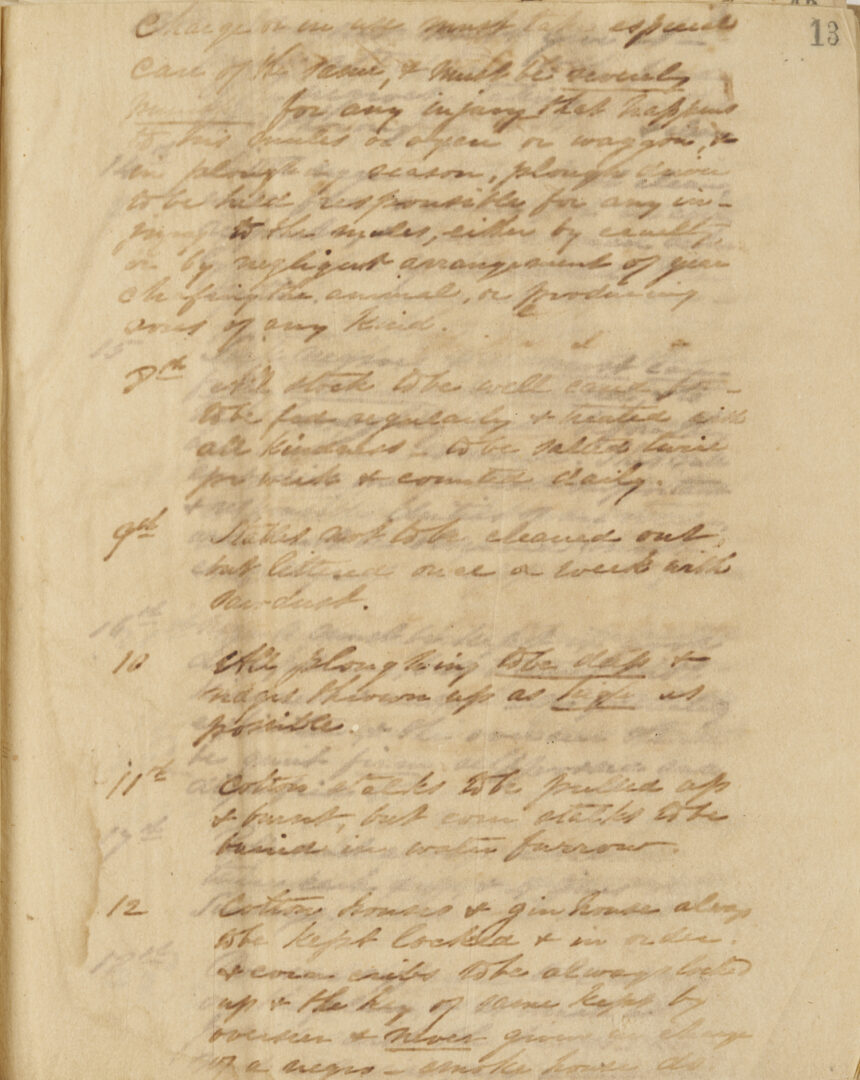 13
charge or in use must take especial
care of the same, & must be severely
for any injury that happens
to his mules or oxen or waggon, &
in ploughing season, plough
to be held responsible for any in-
jury to the mules, either by cruelty
or by negligent arrangement of gear
chafing the animal, or producing
sores of any kind.
8th All stock to be well cared for -
to be fed regularly & treated with
all kindness - to be salted twice
pr week & counted daily.
9th Stables not to be cleaned out,
but littered once a week with
sawdust.
10 All ploughing to be deep &
ridges thrown up as high as
possible.
11th Cotton stalks to be pulled up
& burnt, but corn stalks to be
buried in water furrow.
12 Cotton houses & gin house always
to be kept locked & in order.
& corn cribs to be always locked
up & the key of same kept by
overseer & never given in charge
of a negro - smoke house do.